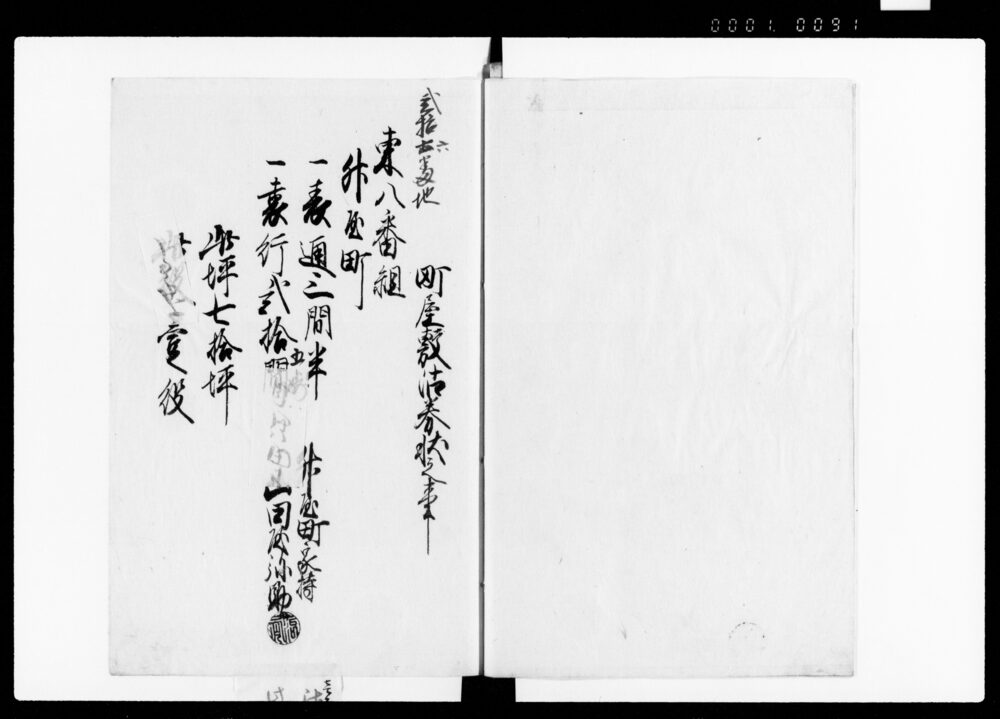 0001 0091
弐拾六番地
町屋敷沽券状之事
東八番組
升屋町
一表通三間半
一裏行弐拾間
此坪七拾坪
壱役
升屋町家持
山田屋弥助